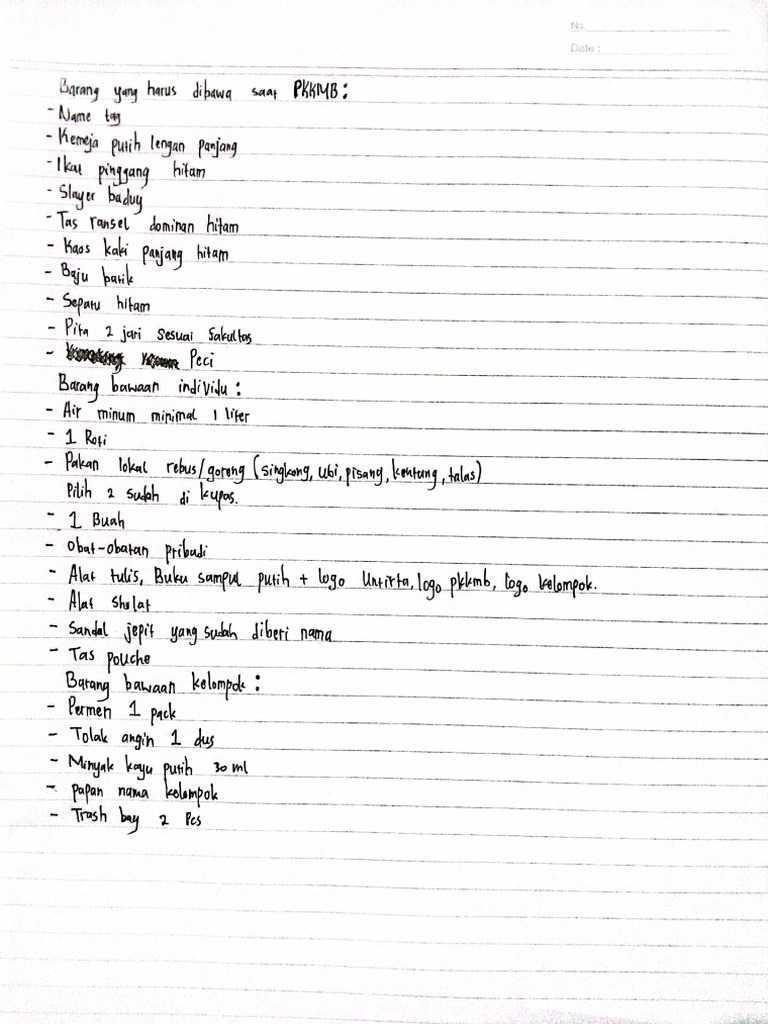 No.
Date :
Barang yang harus dibawa saat PKKMB :
- Name tag
- Kemeja putih lengan panjang
- Ikat pinggang hitam
- Slayer baduy
- Tas ransel dominan hitam
- Kaos kaki panjang hitam
- Baju batik
- Sepatu hitam
- Pita 2 jari sesuai fakultas
- Peci
Barang bawaan individu :
- Air minum minimal 1 liter
- 1 Roti
- Pakan lokal rebus/goreng (singkong, ubi, pisang, kentang, talas)
Pilih 2 sudah di kupas.
- 1 Buah
- Obat-obatan pribadi
- Alat tulis, Buku sampul putih + logo Untirta, logo pkkmb, logo kelompok.
- Alat sholat
- Sandal jepit yang sudah diberi nama
- Tas pouche
Barang bawaan kelompok :
- Permen 1 pack
- Tolak angin 1 dus
- Minyak kayu putih 30 ml
- papan nama kelompok
- Trash bag 2 Pcs